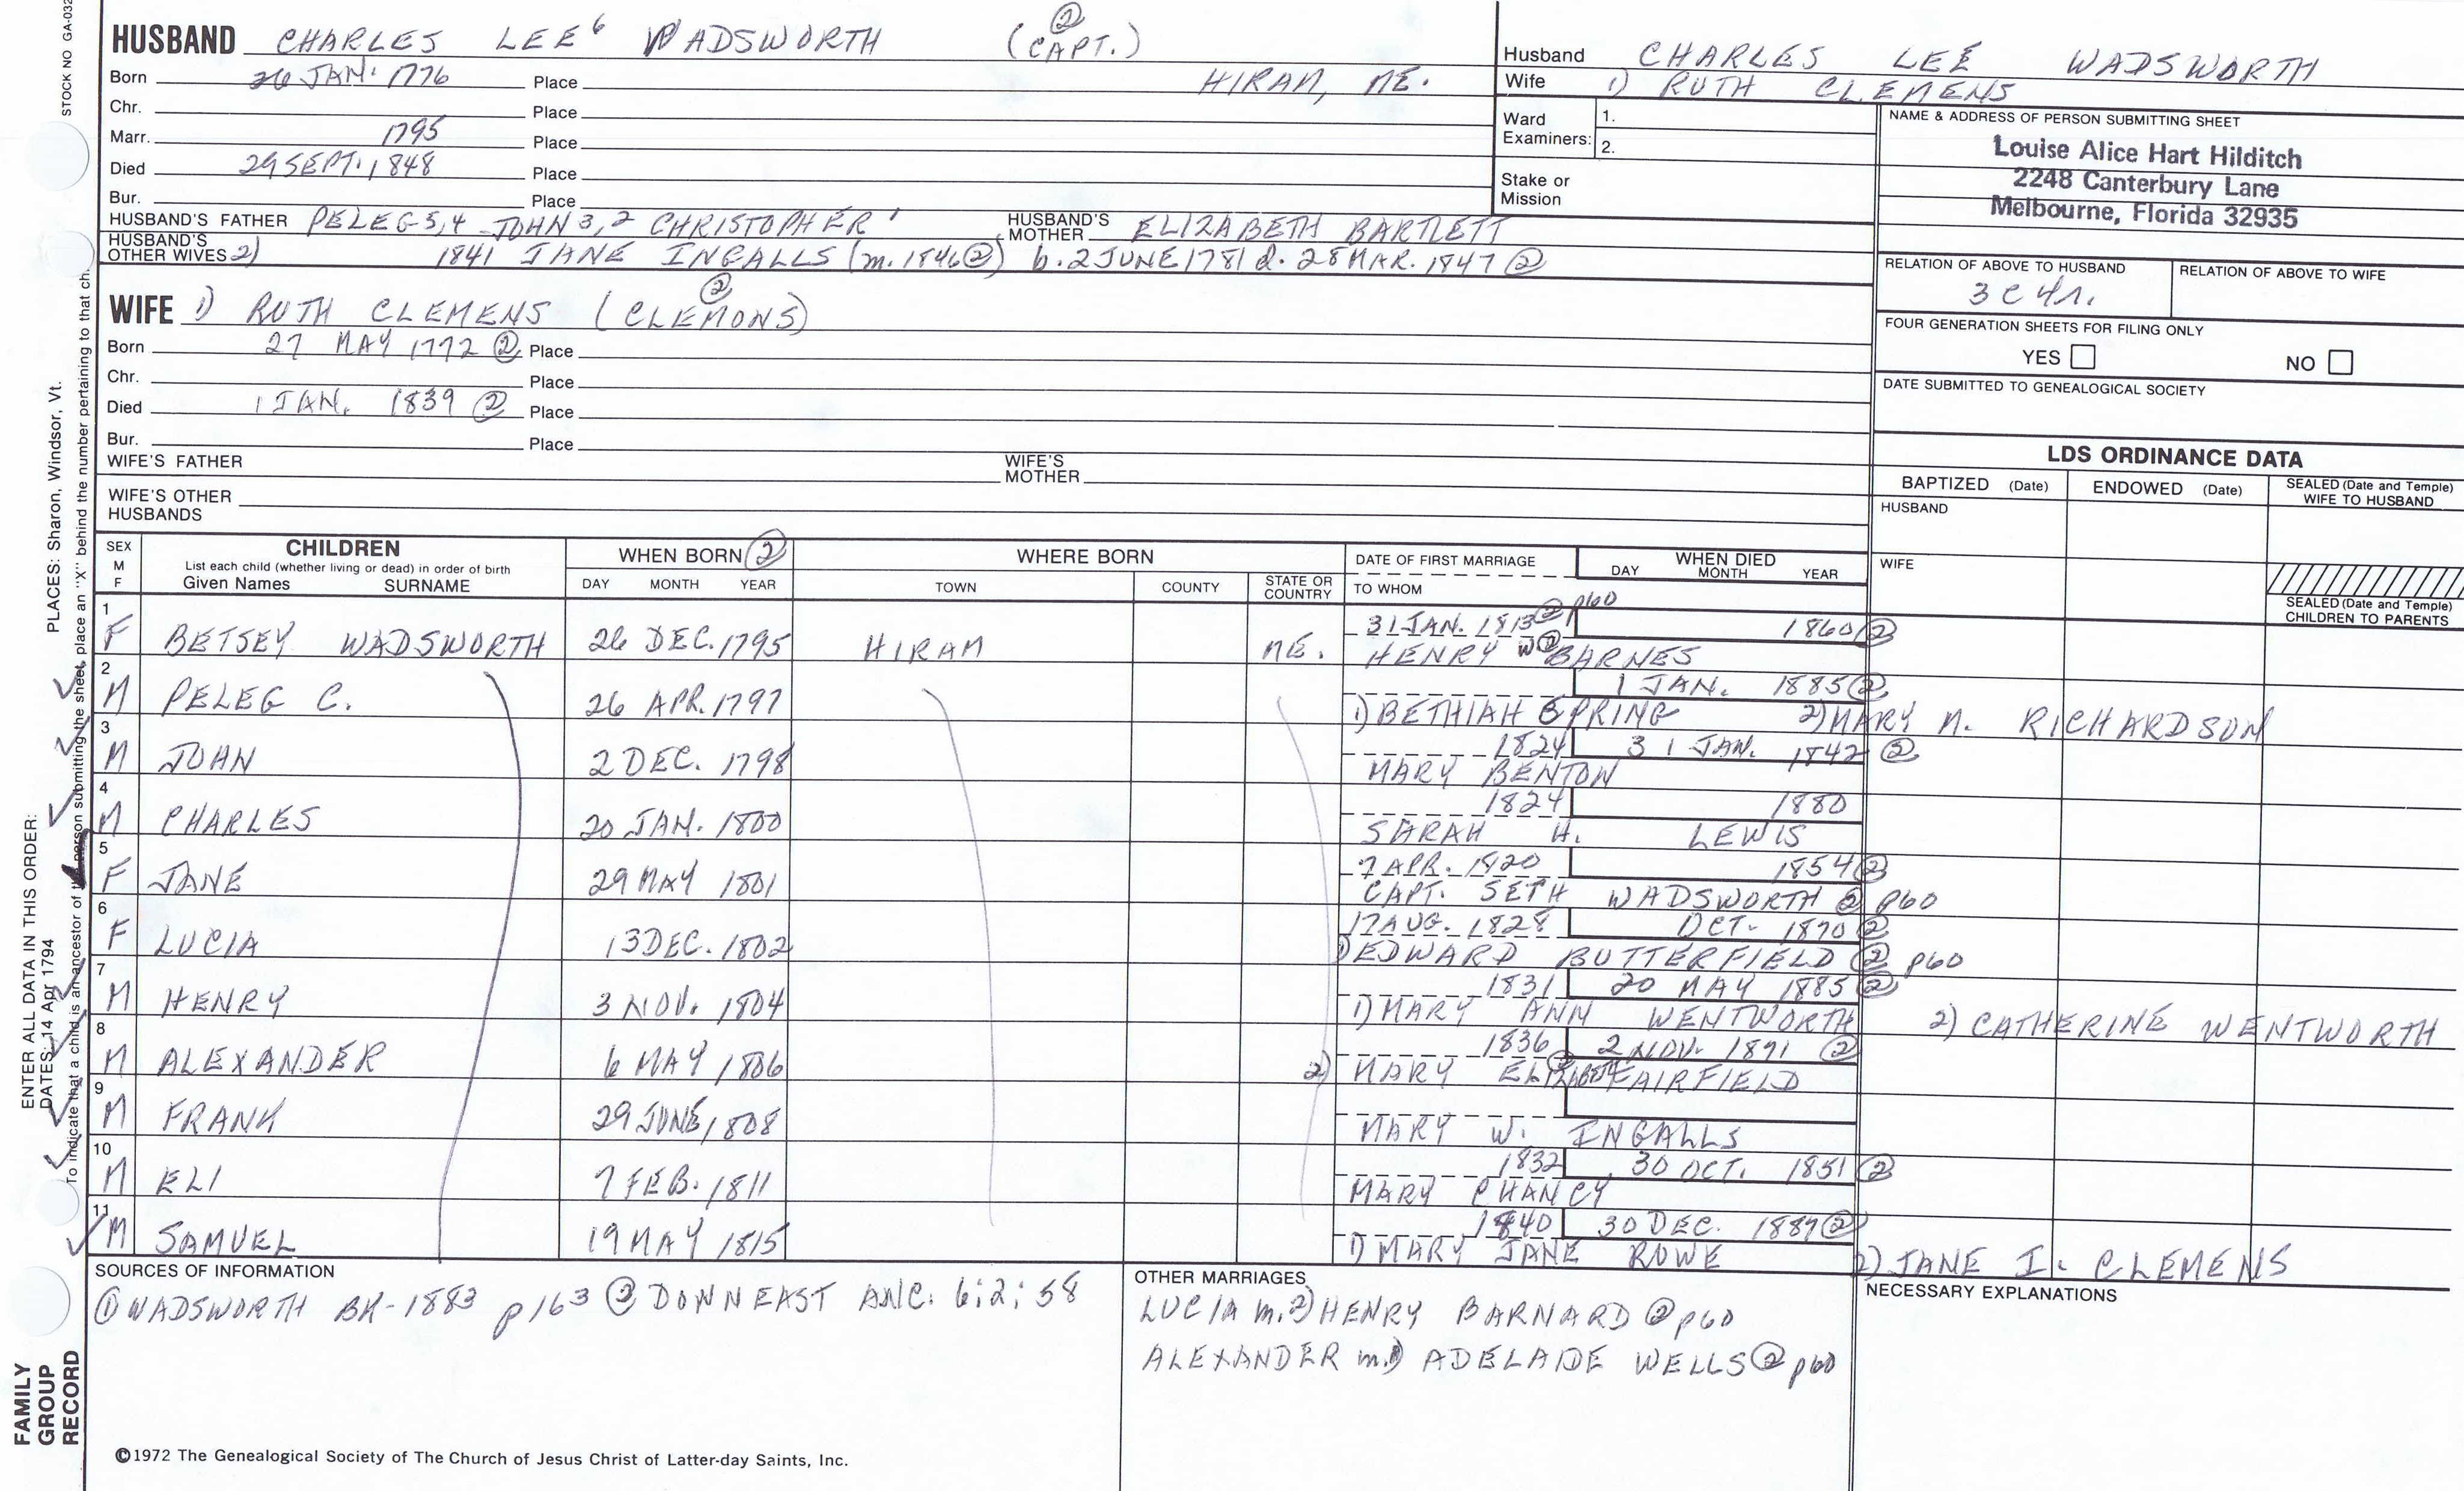 STOCK NO GA-032
HUSBAND CHARLES LEE⁶ WADSWORTH (CAPT.) ②
Born 26 JAN. 1776 Place HIRAM, ME.
Chr. Place
Marr. 1795 Place
Died 29 SEPT. 1848 Place
Bur. Place
HUSBAND'S FATHER PELEG 5,4 JOHN 3,2 CHRISTOPHER ¹ HUSBAND'S MOTHER ELIZABETH BARTLETT
HUSBAND'S OTHER WIVES 2) 1841 JANE INGALLS (m. 1846 ②) b. 2 JUNE 1781 d. 28 MAR. 1847 ②
WIFE 1) RUTH CLEMENS (CLEMONS) ②
Born 27 MAY 1772 ② Place
Chr. Place
Died 1 JAN. 1839 ② Place
Bur. Place
WIFE'S FATHER WIFE'S MOTHER
WIFE'S OTHER HUSBANDS
Husband CHARLES LEE WADSWORTH
Wife 1) RUTH CLEMENS
Ward Examiners: 1.
2.
Stake or Mission
NAME & ADDRESS OF PERSON SUBMITTING SHEET
Louise Alice Hart Hilditch
2248 Canterbury Lane
Melbourne, Florida 32935
RELATION OF ABOVE TO HUSBAND RELATION OF ABOVE TO WIFE
3 C 4r.
FOUR GENERATION SHEETS FOR FILING ONLY
YES NO
DATE SUBMITTED TO GENEALOGICAL SOCIETY
LDS ORDINANCE DATA
BAPTIZED (Date) ENDOWED (Date) SEALED (Date and Temple) WIFE TO HUSBAND
HUSBAND
WIFE
SEALED (Date and Temple) CHILDREN TO PARENTS
SEX M F CHILDREN WHEN BORN ② WHERE BORN DATE OF FIRST MARRIAGE WHEN DIED
List each child (whether living or dead) in order of birth
Given Names SURNAME DAY MONTH YEAR TOWN COUNTY STATE OR COUNTRY TO WHOM DAY MONTH YEAR
1 F BETSEY WADSWORTH 26 DEC. 1795 HIRAM ME. 31 JAN. 1813 ② p60 1860 ②
HENRY W ② BARNES
2 M PELEG C. 26 APR. 1797 1 JAN. 1885 ②
1) BETHIAH SPRING 2) MARY M. RICHARDSON
3 M JOHN 2 DEC. 1798 1824 31 JAN. 1842 ②
MARY BENTON
4 M CHARLES 20 JAN. 1800 1824 1880
SARAH H. LEWIS
5 F JANE 29 MAY 1801 7 APR. 1820 1854 ②
CAPT. SETH WADSWORTH ② p60
6 F LUCIA 13 DEC. 1802 17 AUG. 1828 OCT. 1870 ②
1) EDWARD BUTTERFIELD ② p60
7 M HENRY 3 NOV. 1804 1831 20 MAY 1885 ②
1) MARY ANN WENTWORTH 2) CATHERINE WENTWORTH
8 M ALEXANDER 6 MAY 1806 1836 2 NOV. 1891 ②
2) MARY ELIZABETH ② FAIRFIELD
9 M FRANK 29 JUNE, 1808
MARY W. INGALLS
10 M ELI 7 FEB. 1811 1832 30 OCT. 1851 ②
MARY CHANCY
11 M SAMUEL 19 MAY 1815 1840 30 DEC. 1887 ②
1) MARY JANE ROWE 2) JANE I. CLEMENS
SOURCES OF INFORMATION
① WADSWORTH BK-1883 p163 ② DOWNEAST ANC. 6:2:58
OTHER MARRIAGES
LUCIA m. 2) HENRY BARNARD ② p60
ALEXANDER m. 1) ADELAIDE WELLS ② p60
NECESSARY EXPLANATIONS
©1972 The Genealogical Society of The Church of Jesus Christ of Latter-day Saints, Inc.
FAMILY GROUP RECORD
ENTER ALL DATA IN THIS ORDER:
DATES: 14 Apr 1794 PLACES: Sharon, Windsor, Vt.
To indicate that a child is an ancestor of the person submitting the sheet, place an "X" behind the number pertaining to that ch.